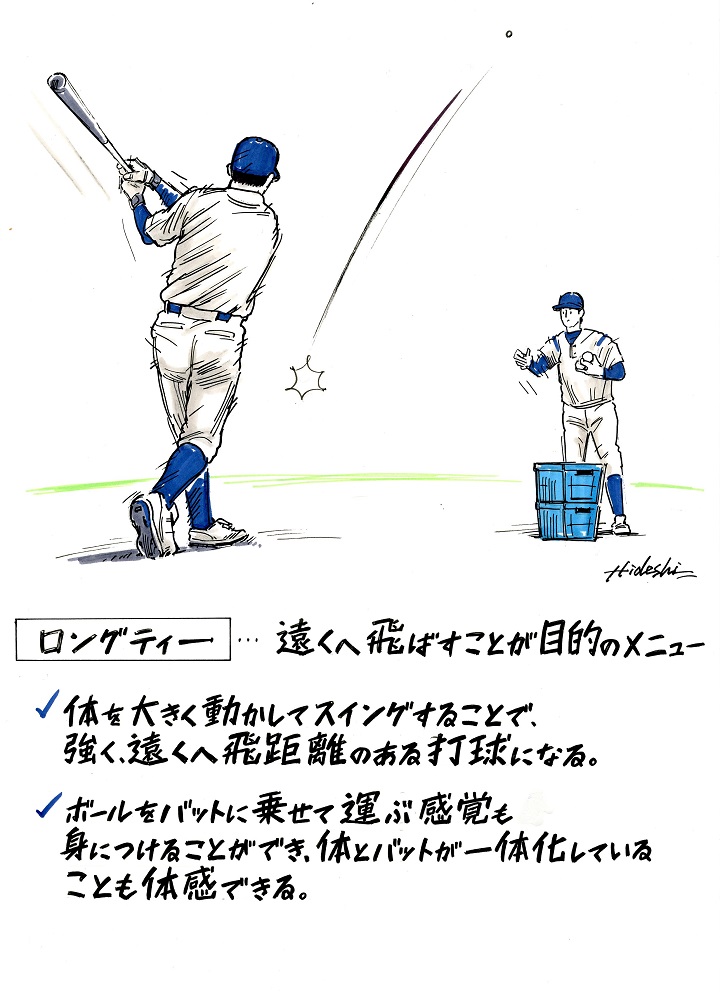 Hideshi
ロングティー … 遠くへ飛ばすことが目的のメニュー
✓ 体を大きく動かしてスイングすることで、
強く、遠くへ飛距離のある打球になる。
✓ ボールをバットに乗せて運ぶ感覚も
身につけることができ、体とバットが一体化している
ことも体感できる。